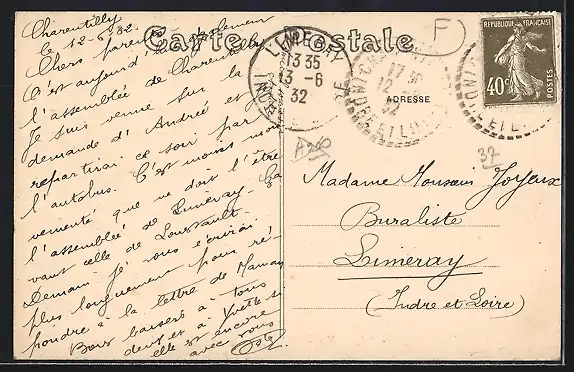 Carte Postale
ADRESSE
REPUBLIQUE FRANÇAISE
40c
POSTES
LIMERAY
13 35
13 - 6
32
INDRE
17
12
32
F
A200
37
Charentilly
le 12-6-32
Chers parents
C'est aujourd'hui
l'assemblée de Charentilly
Je suis venue sur la
demande d'Andrée et je
repartirai ce soir par
l'autobus. C'est moins
que ne doit l'être
l'assemblée de Limeray
vant celle de
Demain je vous écrirai
plus longuement pour ré-
pondre à la lettre de Maman
Bons baisers à tous
deux et à Yvette si
elle est encore
avec vous
Madame Monsieur Joyeux
Buraliste
Limeray
(Indre et Loire)